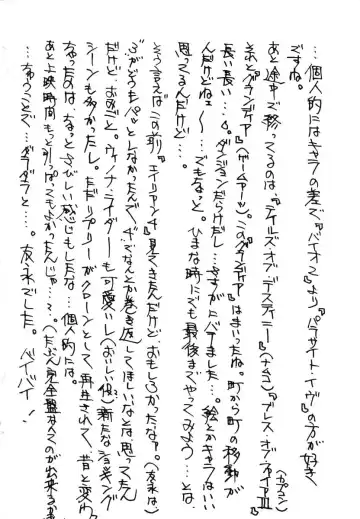 …個人的にはキャラの差で『バイオ2』より『パラサイト・イヴ』の方が好き
ですね。
あと途中で終ってるのは、『テイルズ・オブ・デスティニー』(ナムコ)『ブレス・オブ・ファイアⅢ』(カプコン)
それと『グランディア』(ゲームアーツ)。この『グランディア』はまいったね。町から町の移動が
長い長い…。ダンジョンだらけだし…さすがにバテました…。絵とかキャラはいい
んだけどねェ〜…でもなっと。ひまな時にでも最後までやってみよう…とは
思ってるんだけど…。
そう言えばこの前、『エイリアン4』見てきたんだけど、おもしろかったなァ。(友永は)
『3』がどうもパッとしなかったんで、『4』でなんとか巻き返してほしいなとは思ってたん
だけど、おみごと。ウィノナ・ライダーも可愛いし(おいしい役)、新たなショッキング
シーンも多かったし。ただリプリーがクローンとして再生されて、昔と変わっ
ちゃったのは、なっとさびしい感じもしたな…個人的には。
あと上映時間もっと引っぱってもよかったんじゃ…?。(たぶん完全盤なんてのが出来るか
…ちゅうことで、ダラダラと…。友永でした。バイバイ!